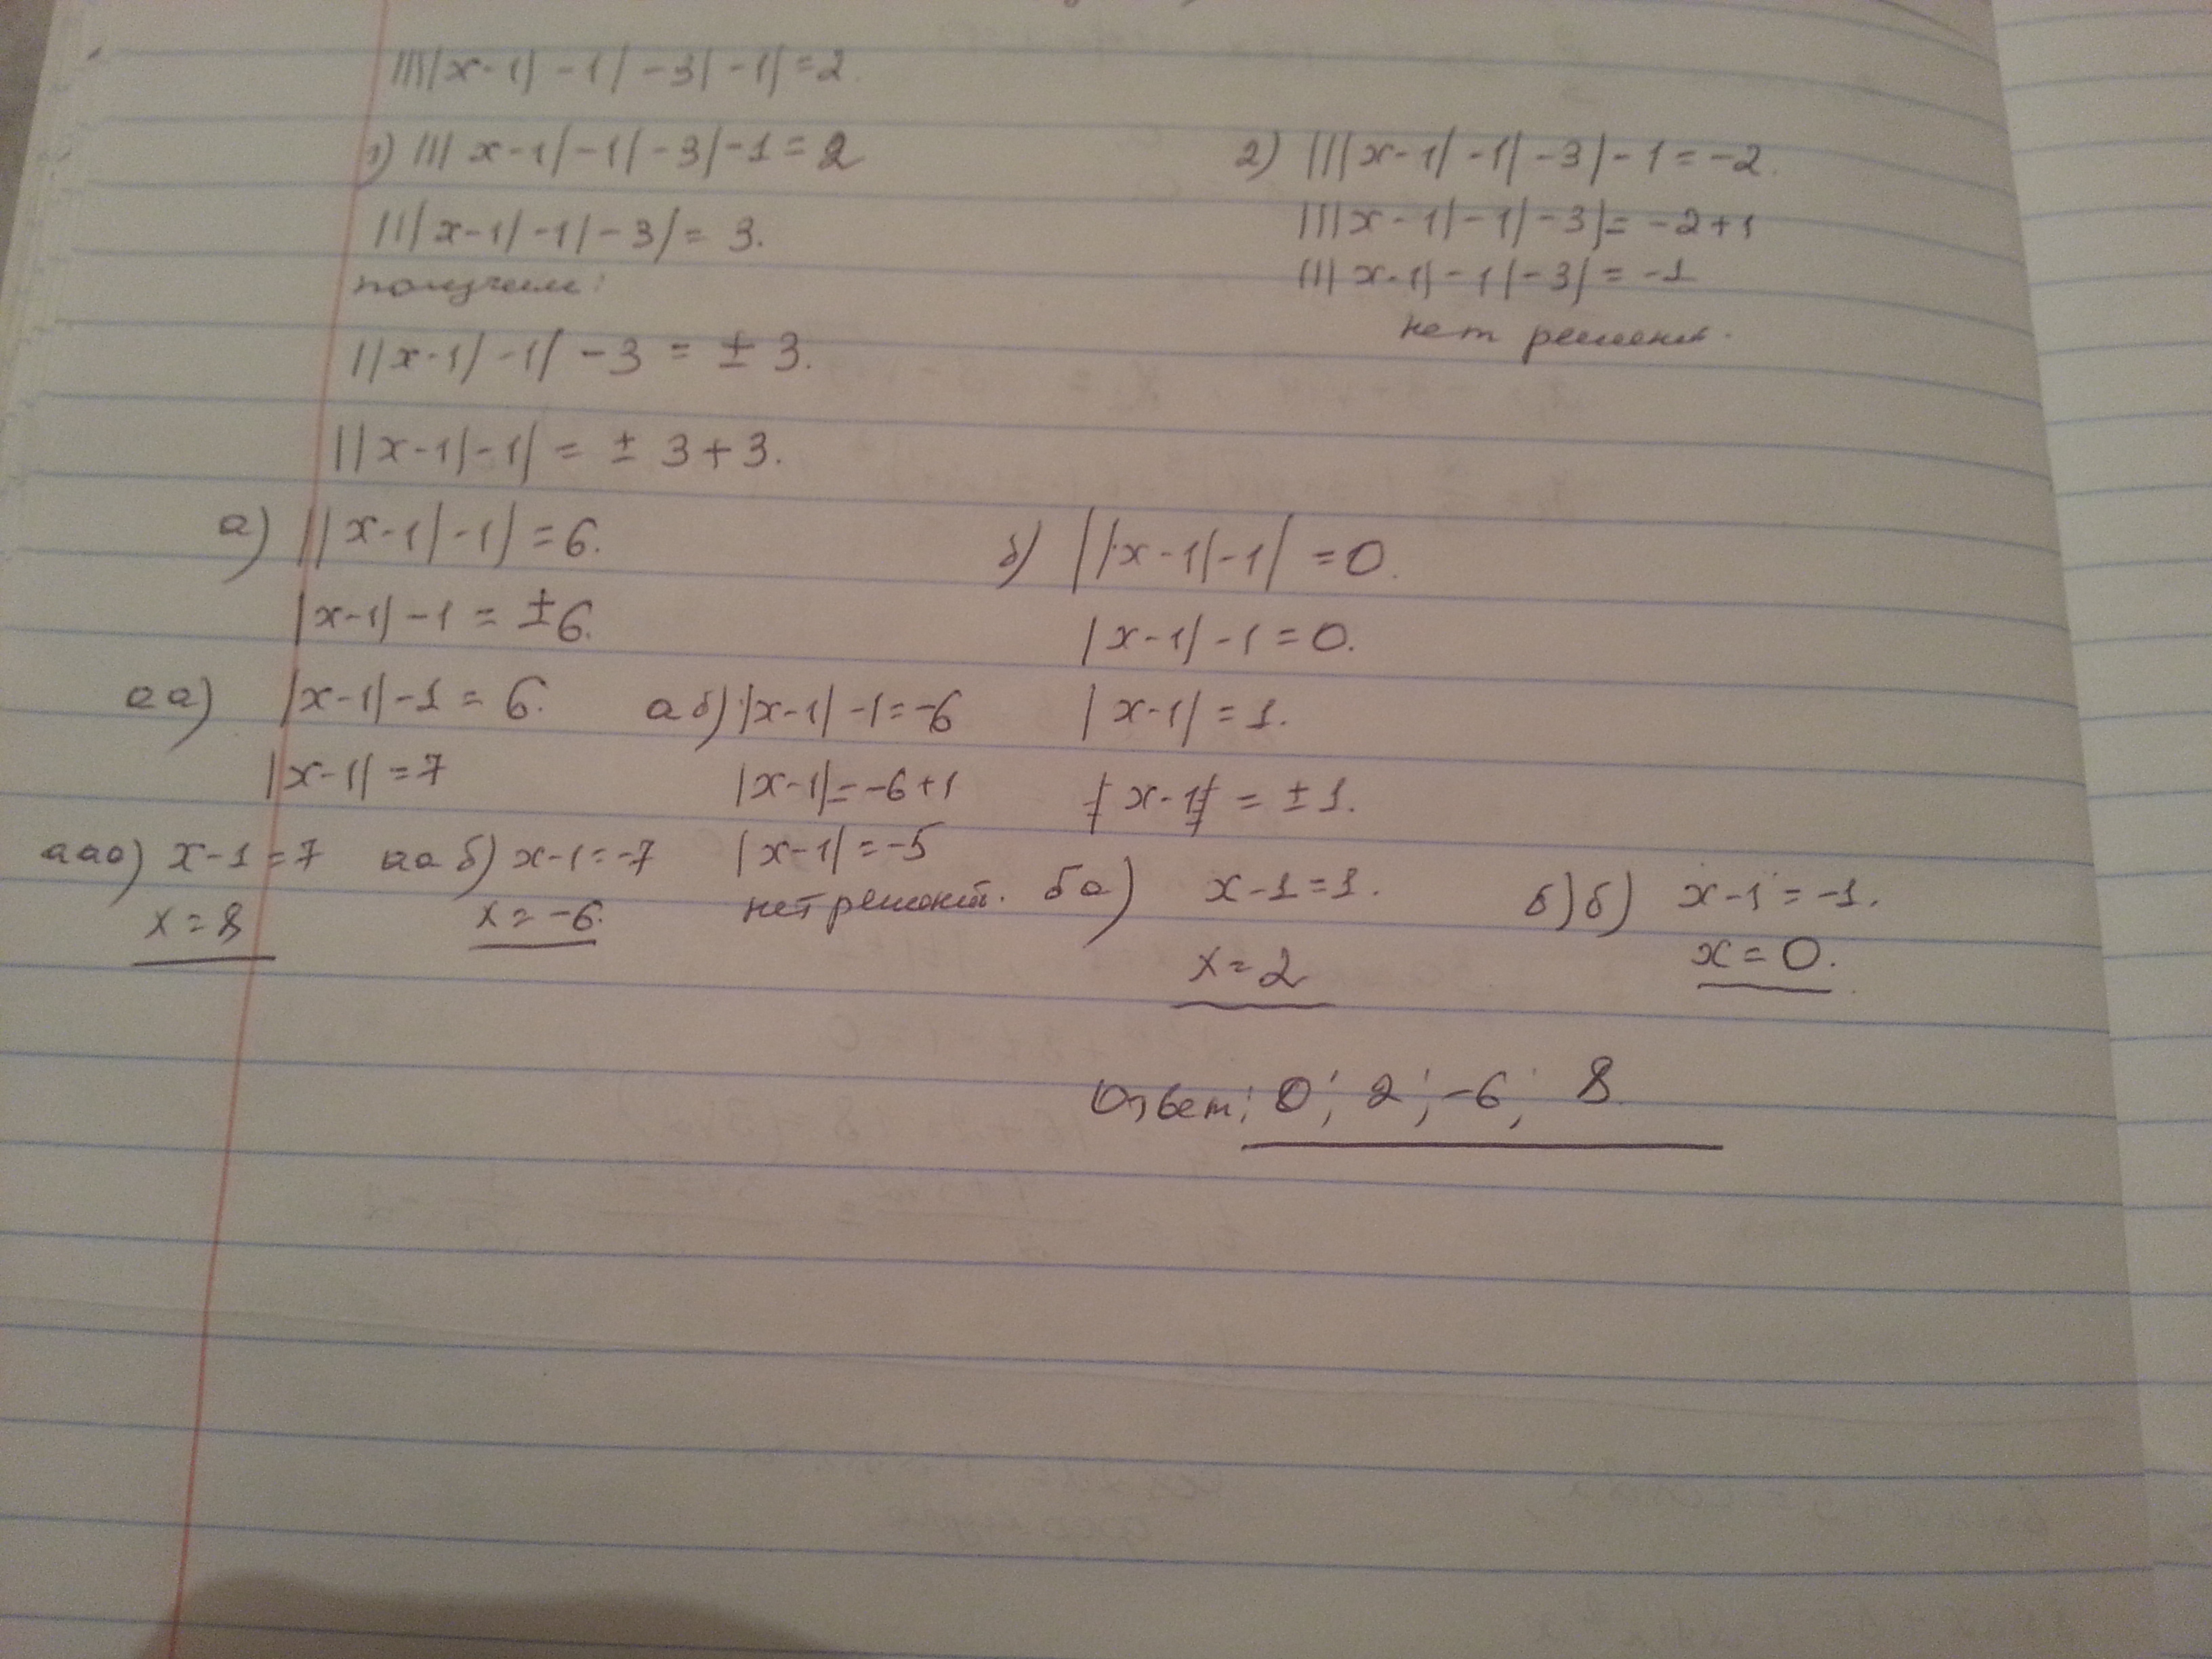 ||||x-1|-1|-3|-1|=2.
1) ||| x-1|-1|-3|-1=2
|||x-1|-1|-3|= 3.
получим:
||x-1|-1| -3 = ± 3.
||x-1|-1| = ± 3+3.
2) |||x-1|-1|-3|-1=-2.
|||x-1|-1|-3|= -2+1
||| x-1|-1|-3|=-1
нет решений.
а) ||x-1|-1|=6.
|x-1|-1 = ±6.
аа) |x-1|-1 = 6.
|x-1| =7
ааа) x-1=7
x=8
ааб) x-1=-7
x=-6.
аб) |x-1|-1=-6
|x-1|=-6+1
|x-1|=-5
нет решений.
б) ||x-1|-1| =0.
|x-1|-1=0.
|x-1|=1.
x-1 = ±1.
ба) x-1=1.
x=2
б)б) x-1=-1.
x=0.
Ответ: 0; 2; -6; 8.